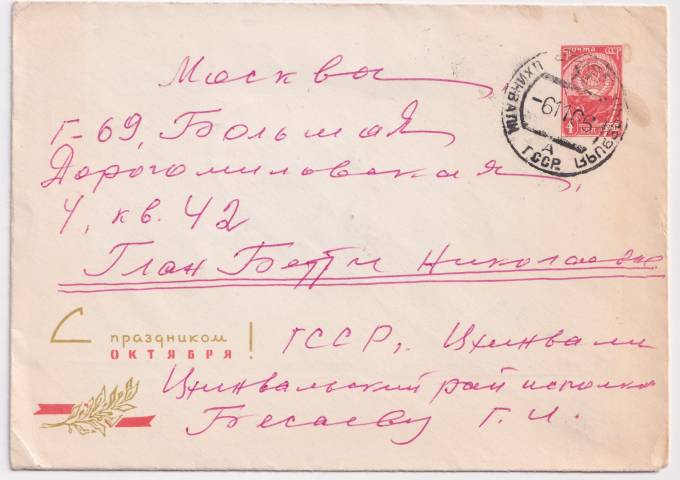 ПОЧТА СССР
4 к.
ЦХИНВАЛИ
-6 11 66
А
ГССР
Москва
Г-69, Большая
Дорогомиловская,
4, кв. 42
Глан Бетти Николаевне
С праздником
ОКТЯБРЯ!
ГССР, Цхинвали
Цхинвальский райисполком
Бесаеву Г. И.